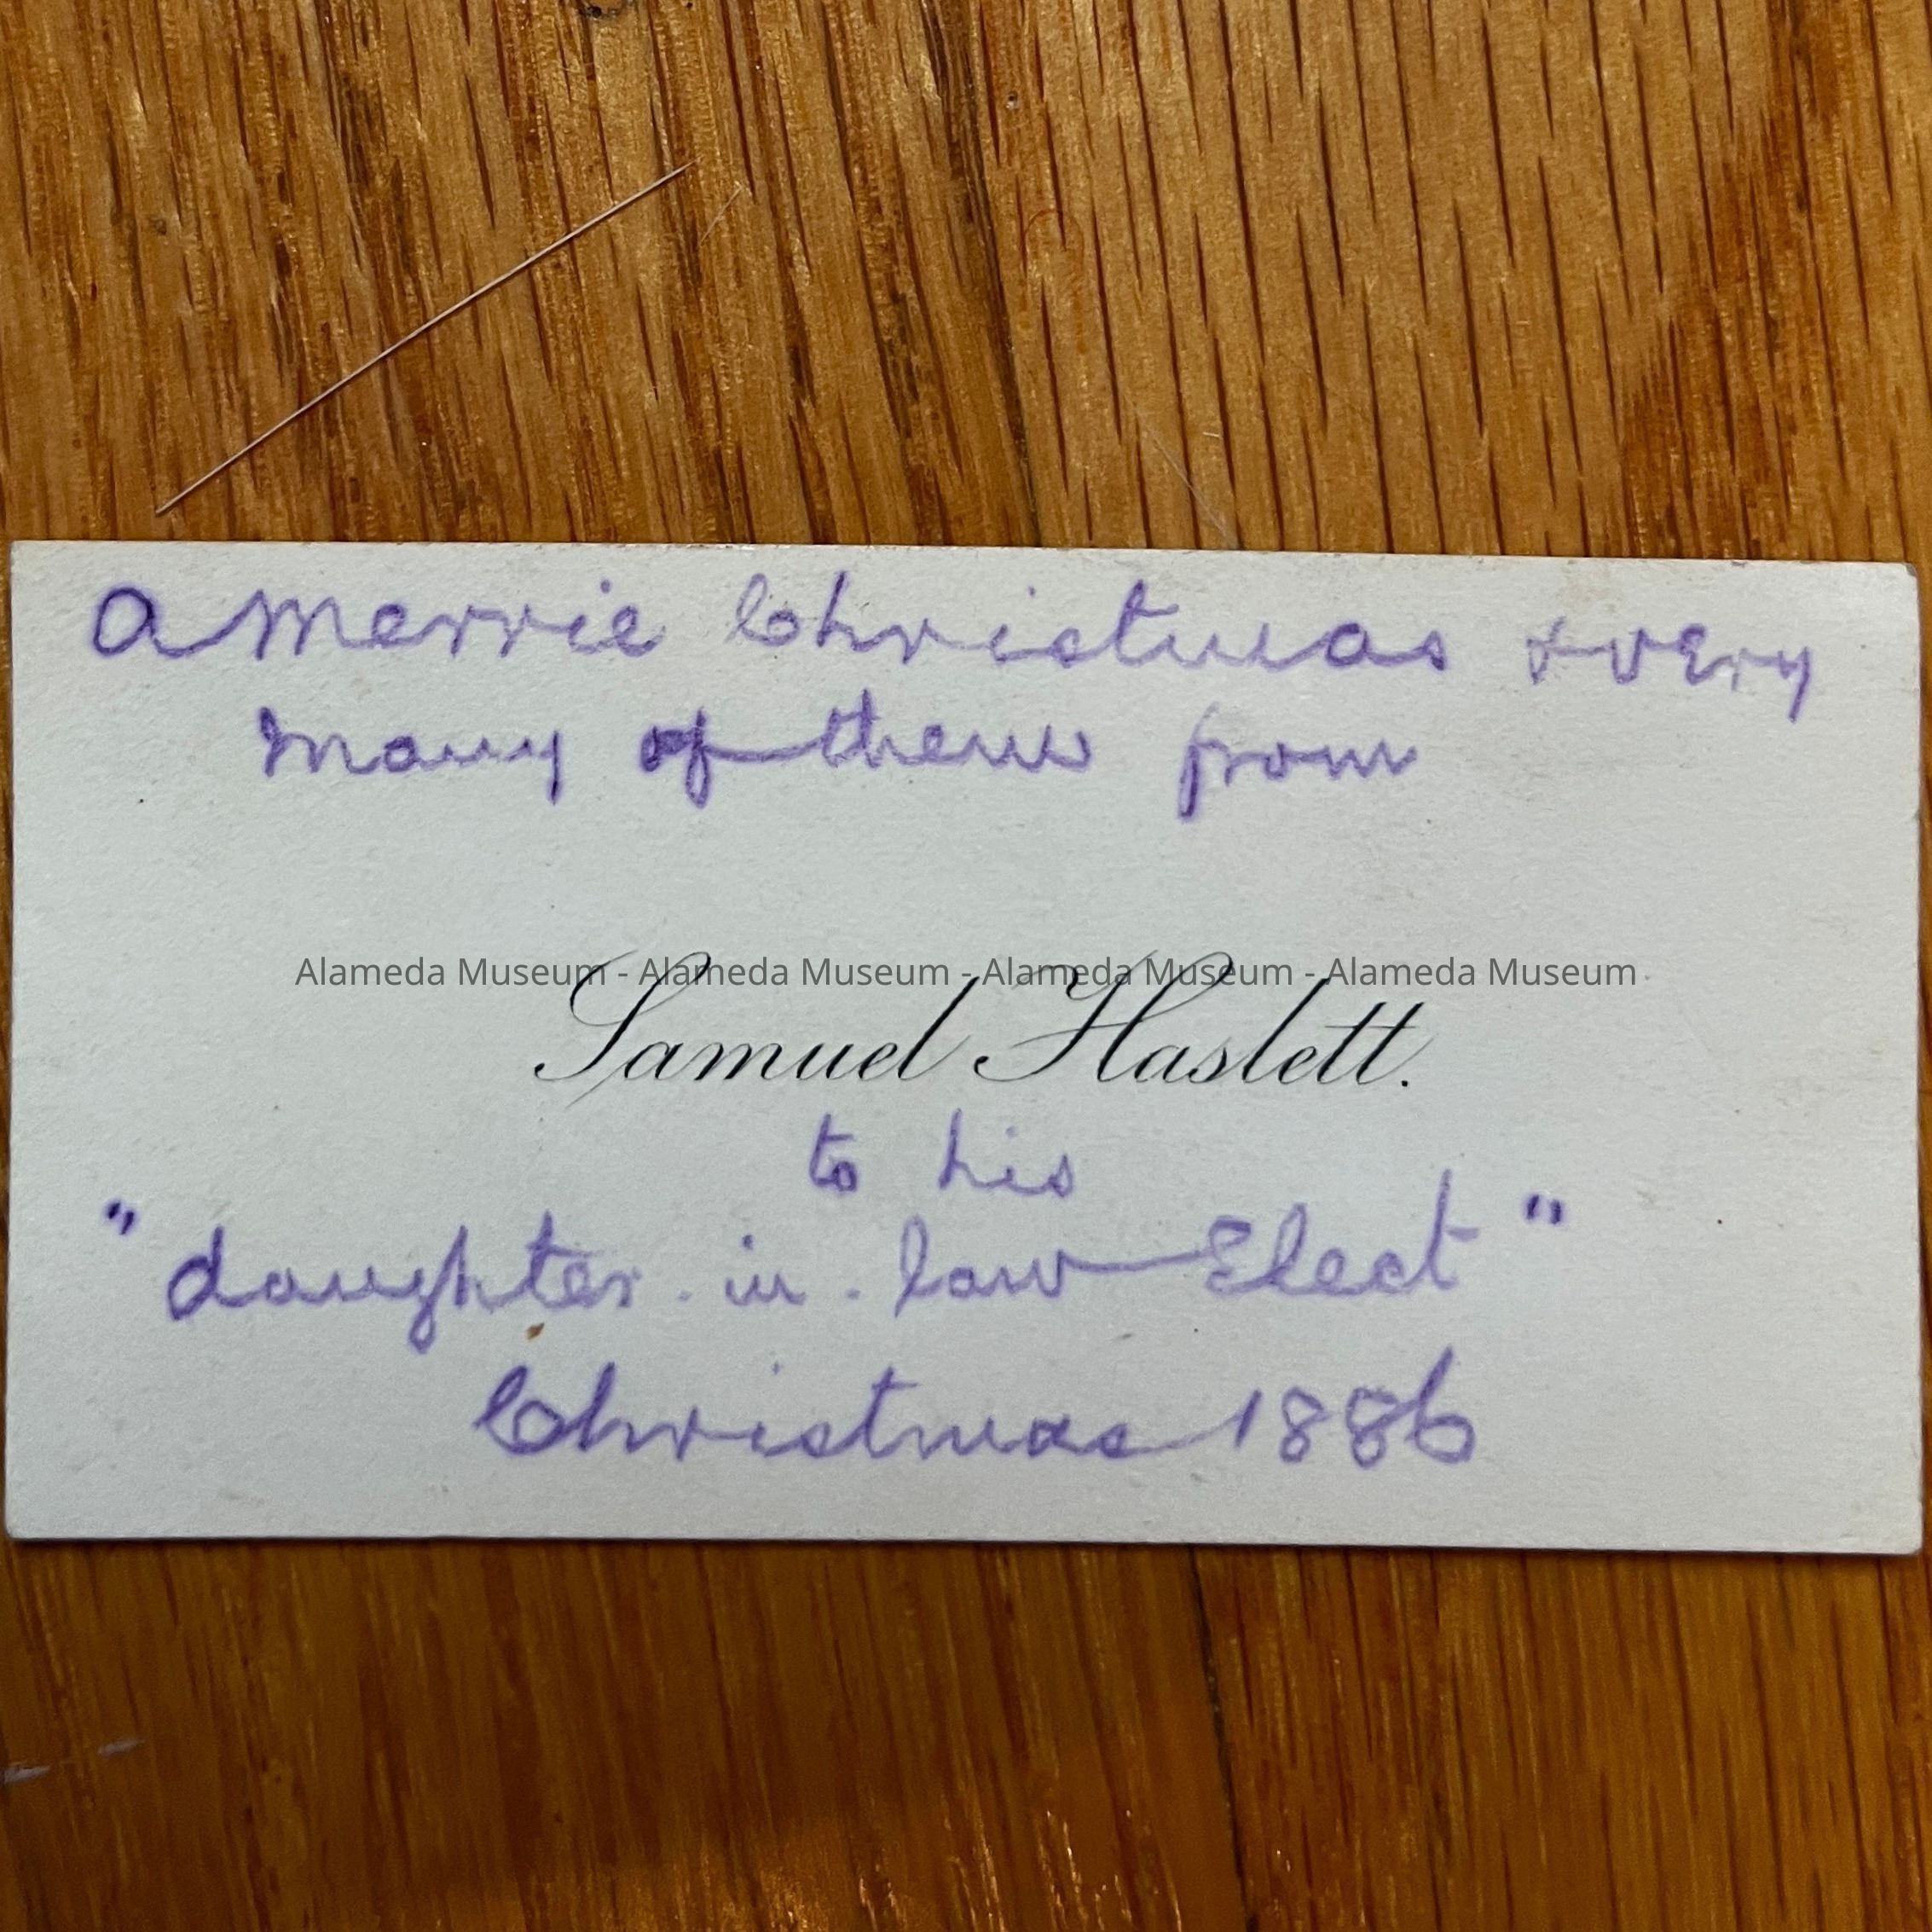 A Merrie Christmas & very
many of them from
Alameda Museum - Alameda Museum - Alameda Museum - Alameda Museum
Samuel Haslett.
to his
"daughter-in-law Elect"
Christmas 1886